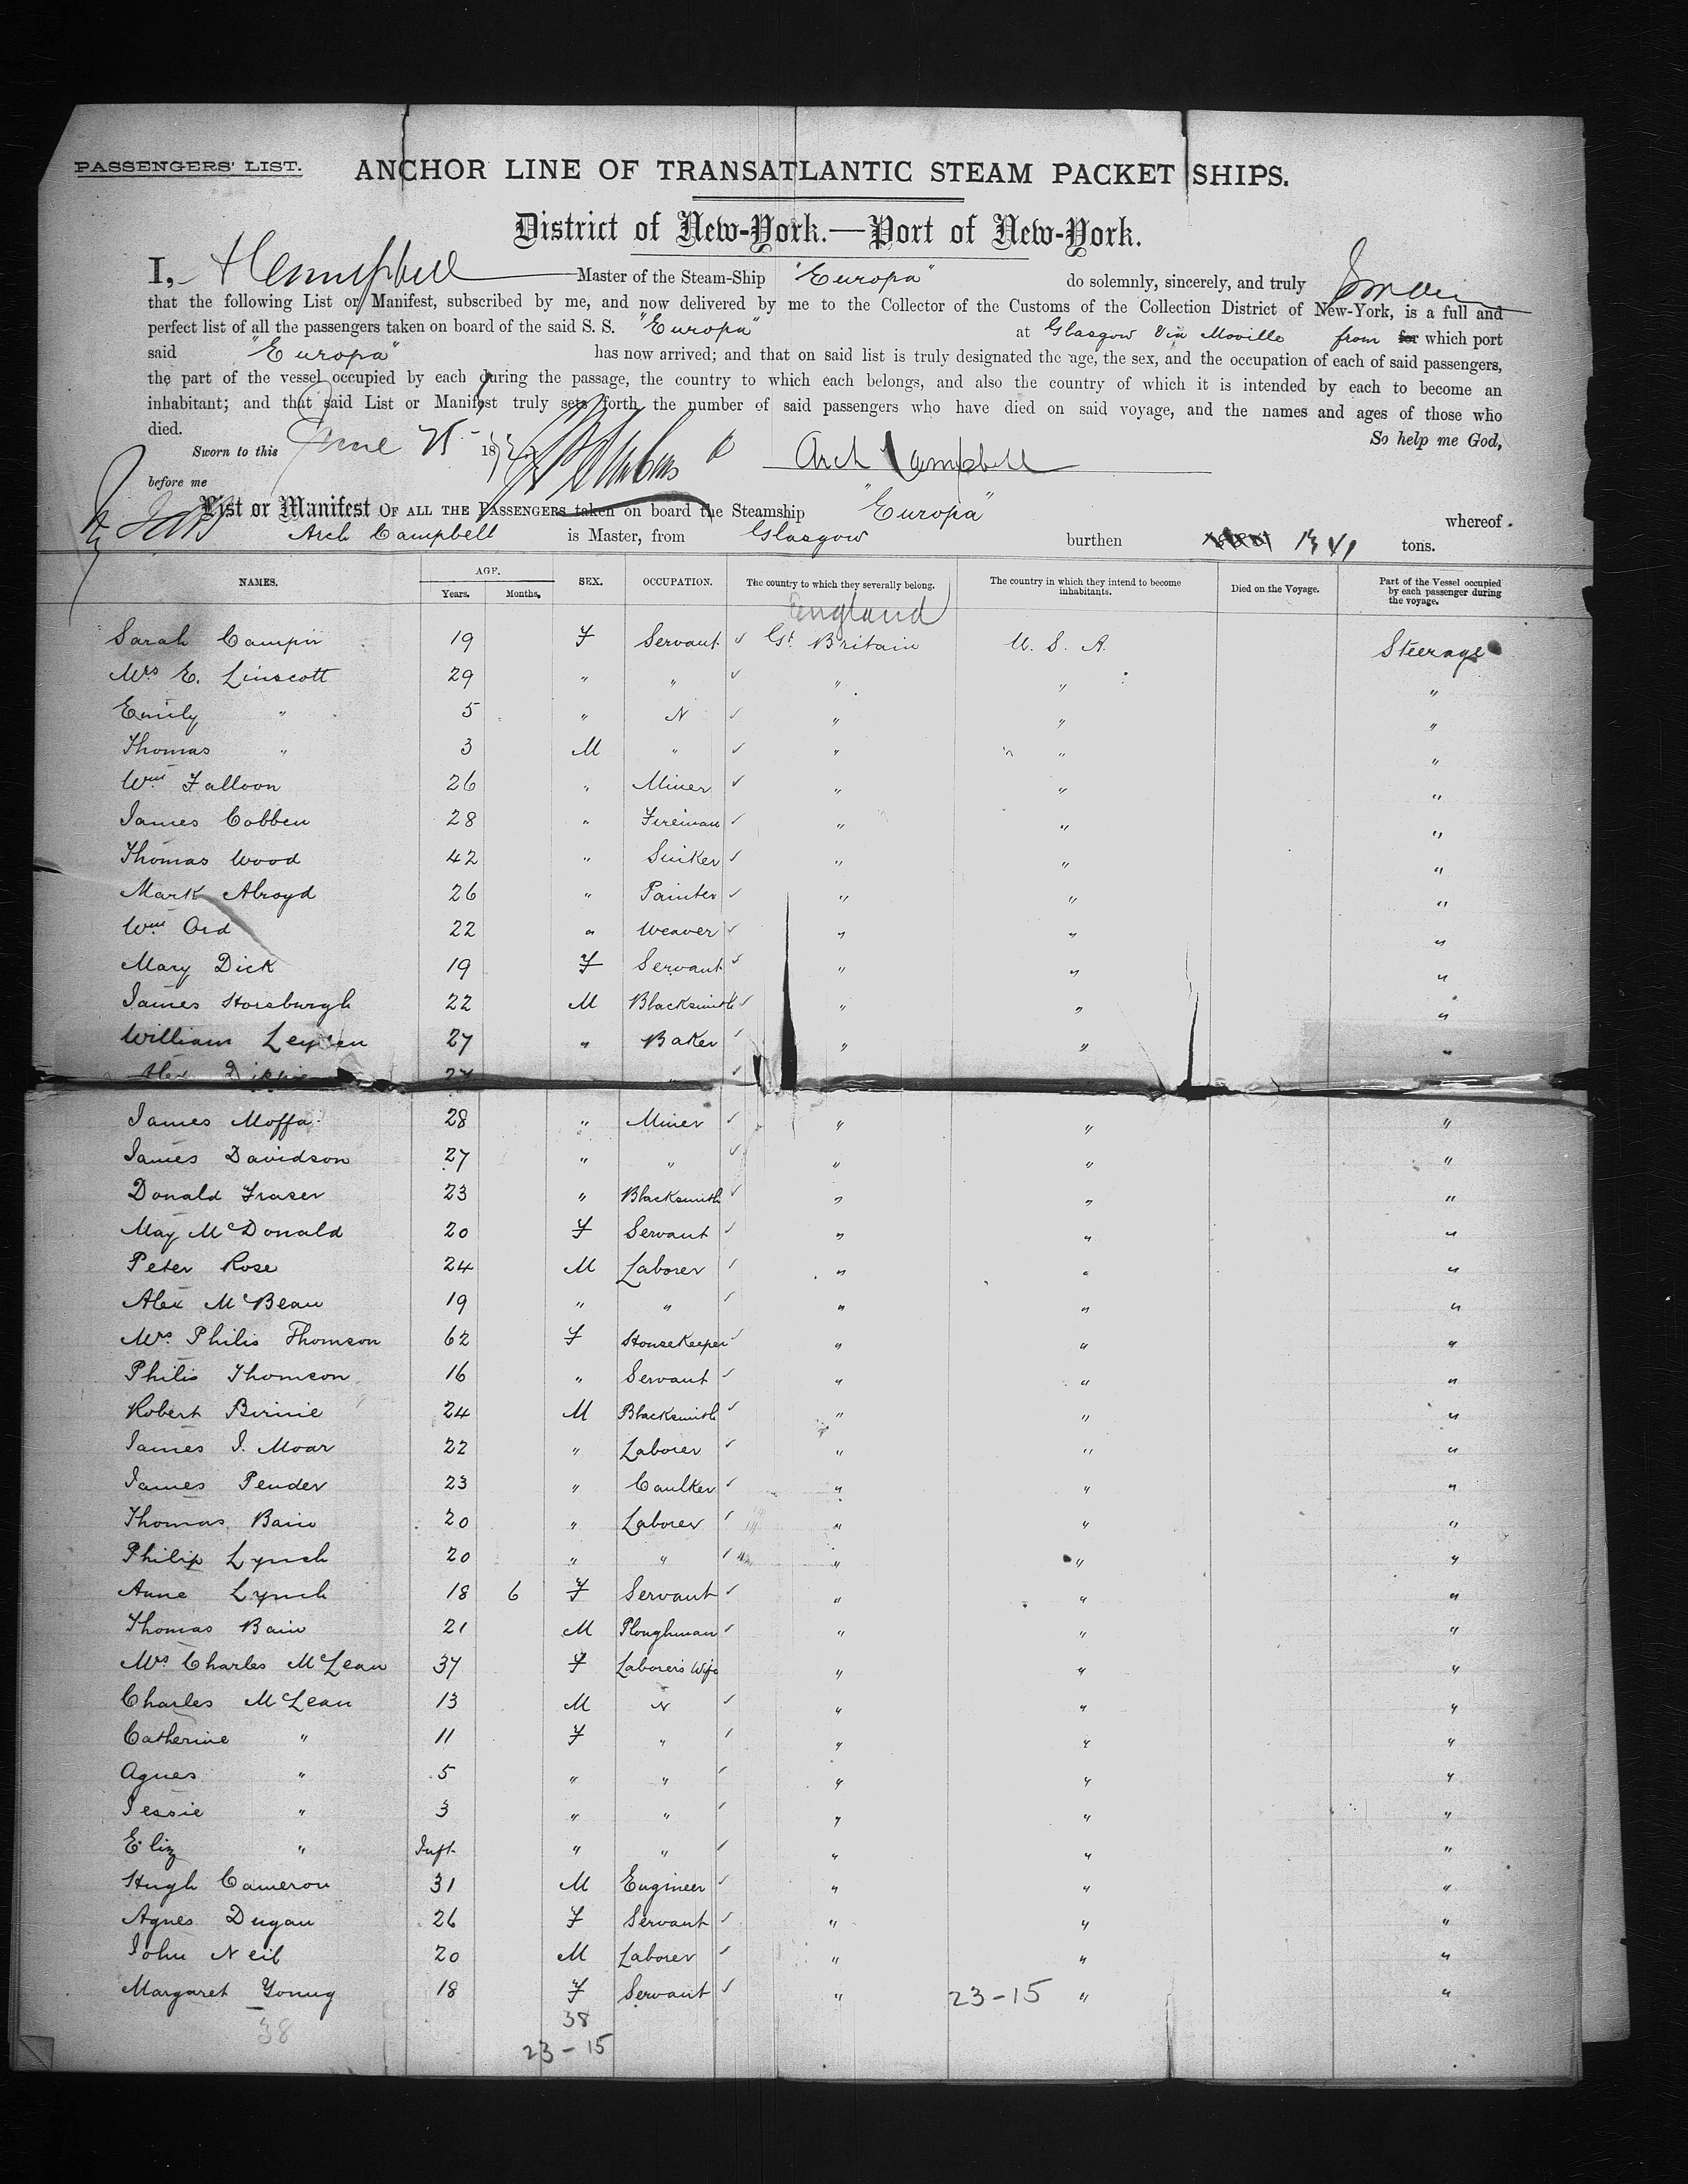 PASSENGERS' LIST.
ANCHOR LINE OF TRANSATLANTIC STEAM PACKET SHIPS.
District of New-York.—Port of New-York.
I, Campbell Master of the Steam-Ship "Europa" do solemnly, sincerely, and truly Swear
that the following List or Manifest, subscribed by me, and now delivered by me to the Collector of the Customs of the Collection District of New-York, is a full and
perfect list of all the passengers taken on board of the said S. S. "Europa" at Glasgow Via Moville from for which port
said "Europa" has now arrived; and that on said list is truly designated the age, the sex, and the occupation of each of said passengers,
the part of the vessel occupied by each during the passage, the country to which each belongs, and also the country of which it is intended by each to become an
inhabitant; and that said List or Manifest truly sets forth the number of said passengers who have died on said voyage, and the names and ages of those who
died. So help me God,
Sworn to this June 25 18 Arch Campbell
before me
List or Manifest OF ALL THE PASSENGERS taken on board the Steamship "Europa" whereof
Arch Campbell is Master, from Glasgow burthen tons.
NAMES. AGE. Years. Months. SEX. OCCUPATION. The country to which they severally belong. The country in which they intend to become inhabitants. Died on the Voyage. Part of the Vessel occupied by each passenger during the voyage.
England
Sarah 19 F Servant ✓ Gt. Britain U. S. A. Steerage
Mrs E. Linscott 29 " " ✓ " " "
Emily " 5 " N ✓ " " "
Thomas " 3 M " ✓ " " "
Wm Falloon 26 " Miner ✓ " " "
James Cobben 28 " Fireman ✓ " " "
Thomas Wood 42 " Sinker ✓ " " "
Mark Abroyd 26 " Painter ✓ " " "
Wm Ord 22 " Weaver ✓ " " "
Mary Dick 19 F Servant ✓ " " "
James Horsburgh 22 M Blacksmith ✓ " " "
William 27 " Baker ✓ " " "
Alex 24 " ✓
James Moffa 28 " Miner ✓ " " "
James Davidson 27 " " ✓ " " "
Donald Fraser 23 " Blacksmith ✓ " " "
May McDonald 20 F Servant ✓ " " "
Peter Rose 24 M Laborer ✓ " " "
Alex McBean 19 " " ✓ " " "
Mrs. Philis Thomson 62 F HouseKeeper ✓ " " "
Philis Thomson 16 " Servant ✓ " " "
Robert Birnie 24 M Blacksmith ✓ " " "
James J. Moar 22 " Laborer ✓ " " "
James Pender 23 " Caulker ✓ " " "
Thomas Bain 20 " Laborer ✓ " " "
Philip Lynch 20 " " ✓ " " "
Anne Lynch 18 6 F Servant ✓ " " "
Thomas Bain 21 M Ploughman ✓ " " "
Mrs Charles McLean 37 F Laborer's Wife " " "
Charles McLean 13 M N ✓ " " "
Catherine " 11 F " ✓ " " "
Agnes " 5 " " ✓ " " "
Jessie " 3 " " ✓ " " "
Eliz " Inft. " " ✓ " " "
Hugh Cameron 31 M Engineer ✓ " " "
Agnes Dugan 26 F Servant ✓ " " "
John Neil 20 M Laborer ✓ " " "
Margaret Young 18 F Servant ✓ " 23-15 " "
38 38
23-15